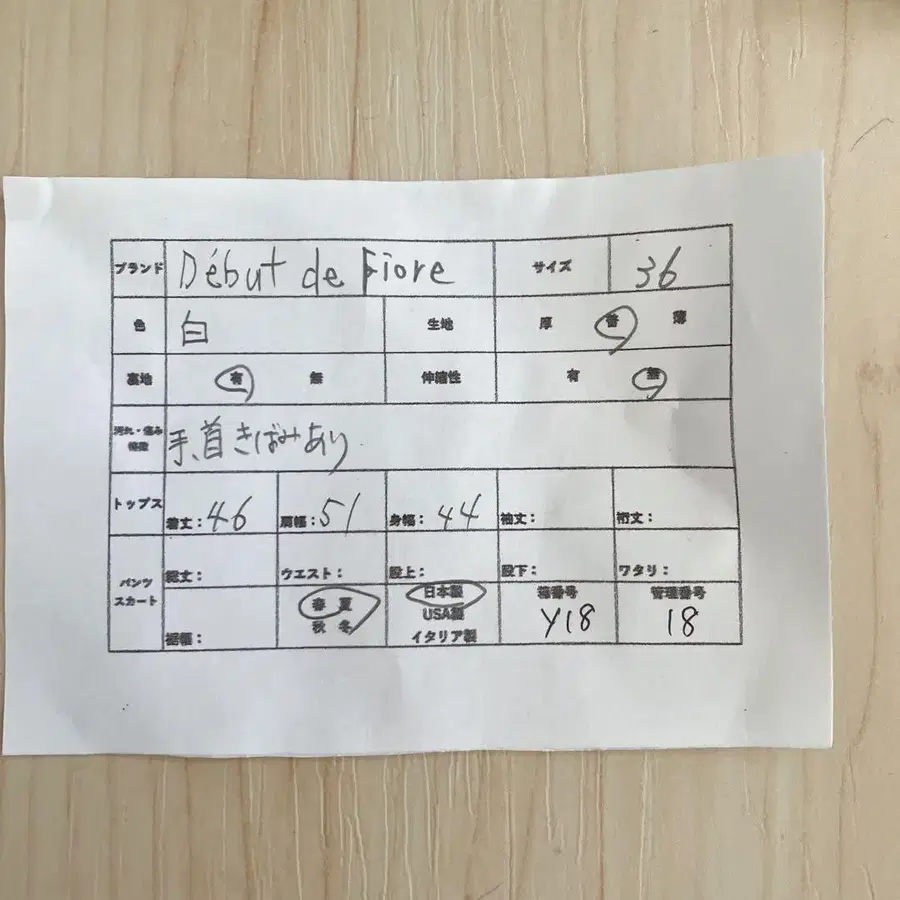 ブランド Début de Fiore サイズ 36
色 白 生地 厚 普 薄
裏地 有 無 伸縮性 有 無
汚れ・傷み
特徴
手、首きばみあり
トップス 着丈：46 肩幅：51 身幅：44 袖丈： 裄丈：
パンツ
スカート
総丈： ウエスト： 股上： 股下： ワタリ：
裾幅：
春 夏
秋 冬
日本製
USA製
イタリア製
箱番号
Y18
管理番号
18